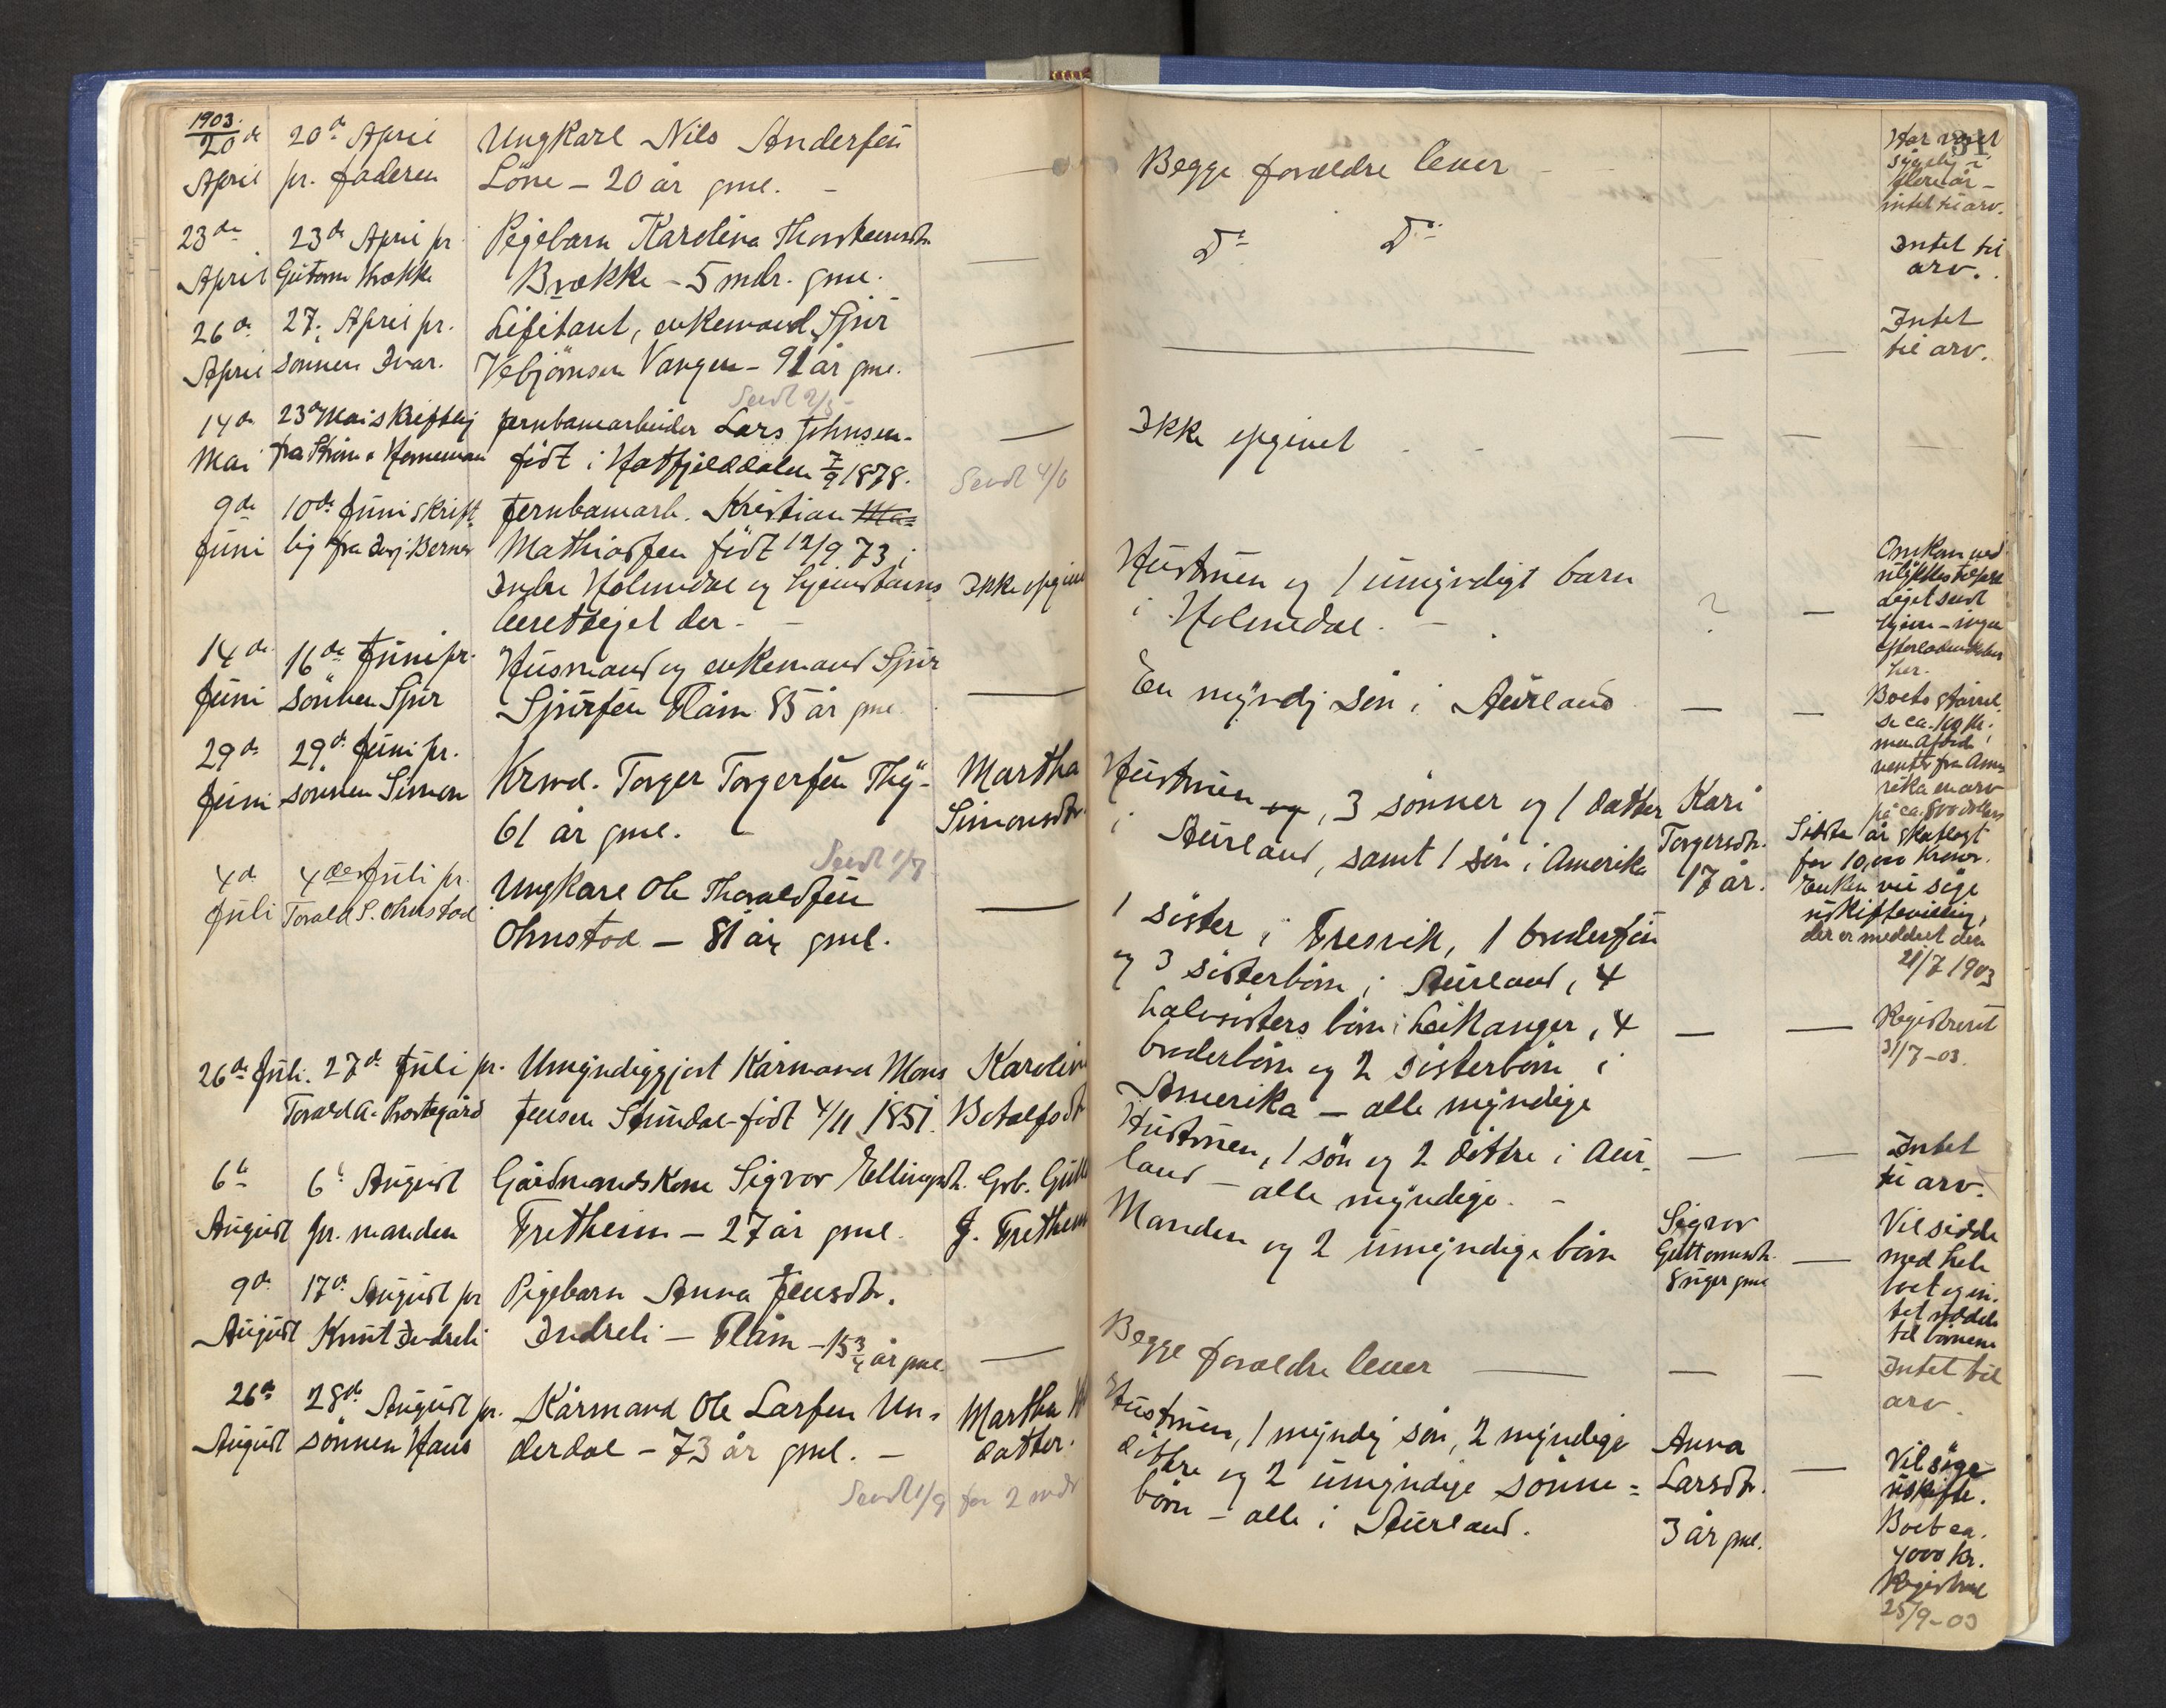 1903.
20de April
20de April pr. faderen
Ungkarl Nils Andersen
Löne – 20 år gml. –
Begge forældre lever
Har været
sygelig i
flere år –
intet til arv.
31
23de April
23de April pr.
Guttorm Brække
Pigebarn Karolina Thorsteinsdtr.
Brække – 5 mdr. gml.
Do Do
Intet til
arv.
26de April
27. April pr.
sönnen Ivar.
Legitant, enkemand Sjur
Vebjörnsen Vangen – 91 år gml.
Sendt 2/5
Intet
til arv.
14de Mai
23de Mai skriftlig
fra Strøm & Horneman
Jernbanearbeider Lars Johnsen –
født i Hatfjelddalen 7/9 1878.
Sendt 4/6
Ikke opgivet
9de Juni
10de Juni skrift-
lig fra Inj. Berner
Jernbanearb. Kristian Ma=
Mathiassen født 12/9 73 i
Indre Holmedal og hjemstavns-
berettiget der. –
Ikke opgivet
Hustruen og 1 umyndigt barn
i Holmedal. –
?
Omkom ved
ulykkestilfælde
Liget sendt
hjem – ingen
efterladenskaber
her.
14de Juni
16de Juni pr.
sönnen Sjur
Husmand og enkemand Sjur
Sjursen Flåm 85 år gml.
En myndig sön i Aurland
Boets størrel-
se ca. 100 kr.
men Afdøde
ventet fra Ame
rika en arv
på ca. 800 dollars
29de Juni
29de Juni pr.
sönnen Simon
Krmd. Torger Torgersen Thy –
61 år gml.
Sendt 1/7
Martha
Simonsdtr.
Hustruen og, 3 sönner og 1 datter
i Aurland, samt 1 sön i Amerika
Kari
Torgersdtr.
17 år.
Sidste år skatlagt
for 10,000 kroner.
Enken vil söge
uskiftevilling,
der er meddelt den
21/7 1903
4de Juli
4de Juli pr.
Torald S. Ohnstad
Ungkarl Ole Thoraldsen
Ohnstad – 81 år gml.
1 söster i Fresvik, 1 brodersön
og 3 sösterbörn i Aurland, 4
halvsösters börn i Leikanger, 4
broderbörn og 2 sösterbörn i
Amerika – alle myndige
Registreret
31/7 – 03.
26de Juli.
27de Juli pr.
Torald A. Prestegård
Umyndiggjort Kårmand Mons
Jensen Stundal – født 4/11 1851.
Karoline
Botolfsdtr
Hustruen, 1 sön og 2 döttre i Aur-
land – alle myndige. –
Intet
til arv.
6te August
6te August
pr. manden
Gårdmandskone Sigvor Ellingsdtr.
Fretheim – 27 år gml.
Grb. Gutt
J. Fretheim
Manden og 2 umyndige börn
Sigvor
Guttormsdtr.
8 uger gml
Vil sidde
med hele
boet og in-
tet uddele
til börnene
9de August
17de August pr
Knut Indreli
Pigebarn Anna Jensdtr.
Indreli – Flåm – 15 3/4 år gml.
Begge forældre lever
Intet til
arv.
26de August
28de August pr.
sönnen Hans
Kårmand Ole Larsen Un-
derdal – 73 år gml. –
Sendt 1/9 for 2 mdr
Martha H
datter.
Hustruen, 1 myndig sön, 2 myndige
döttre og 2 umyndige sönne=
börn – alle i Aurland.
Anna
Larsdtr.
3 år gml.
Vil söge
uskifte.
Boet ca.
4000 kr.
Registreret
25/9 – 03